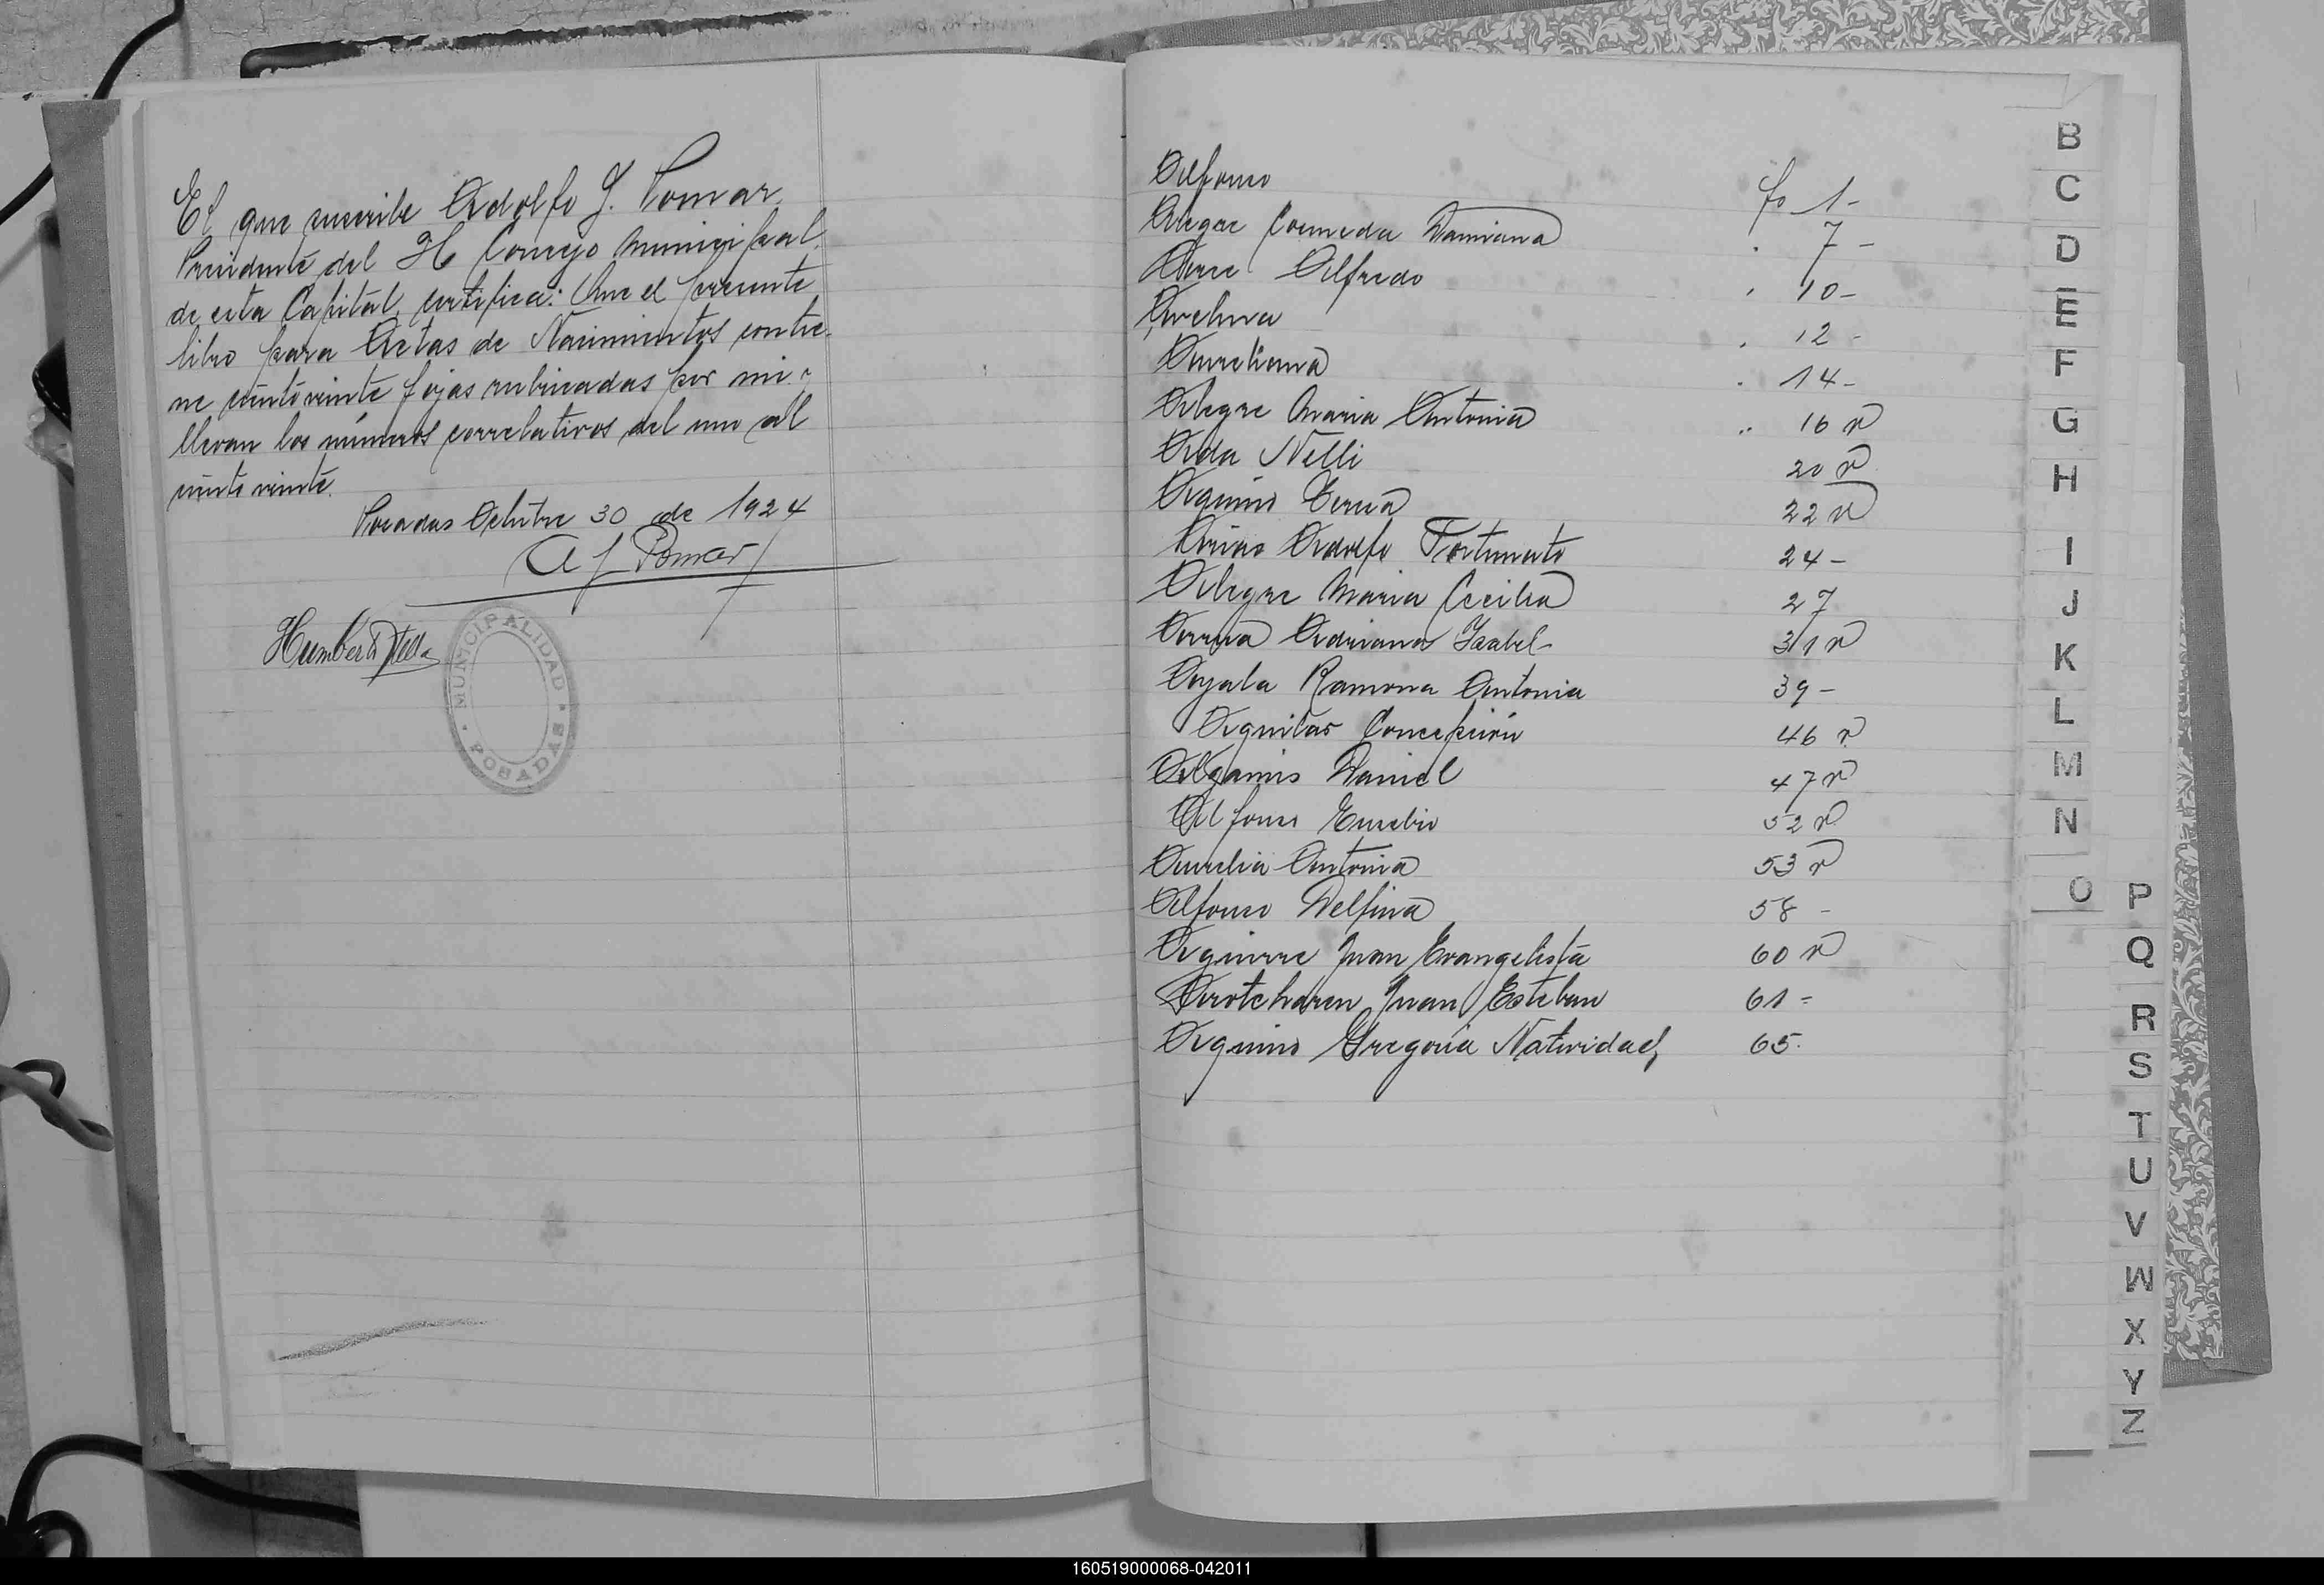 El que suscribe Adolfo J. Pomar
Presidente del H Consejo Municipal
de esta Capital, certifica: Que el presente
libro para Actas de Nacimientos contie-
ne ciento veinte fojas rubricadas por mi y
llevan los números correlativos del uno al
ciento veinte.
Posadas Octubre 30 de 1924
A J Pomar
Humberto
MUNICIPALIDAD
POSADAS
Alfonso fo 1-
Alegre Cosmeda Damiana " 7 -
Alfredo " 10-
Avelina " 12 -
Aureliana " 14-
Alegre Maria Antonia " 16 v
Aida Nelli 20 v
Aquino Teresa 22 v
Arias Adolfo Fortunato 24 -
Alegre Maria Cecilia 27
Adriana Isabel - 31 v
Ayala Ramona Antonia 39 -
Aguilar Concepción 46 v
Daniel 47 v
Alfonso Eusebio 52 v
Aurelia Antonia 53 v
Alfonso Delfina 58 -
Aguirre Juan Evangelista 60 v
Arotcharen Juan Esteban 61 -
Aquino Gregoria Natividad 65.
B
C
D
E
F
G
H
I
J
K
L
M
N
O
P
Q
R
S
T
U
V
W
X
Y
Z
160519000068-042011